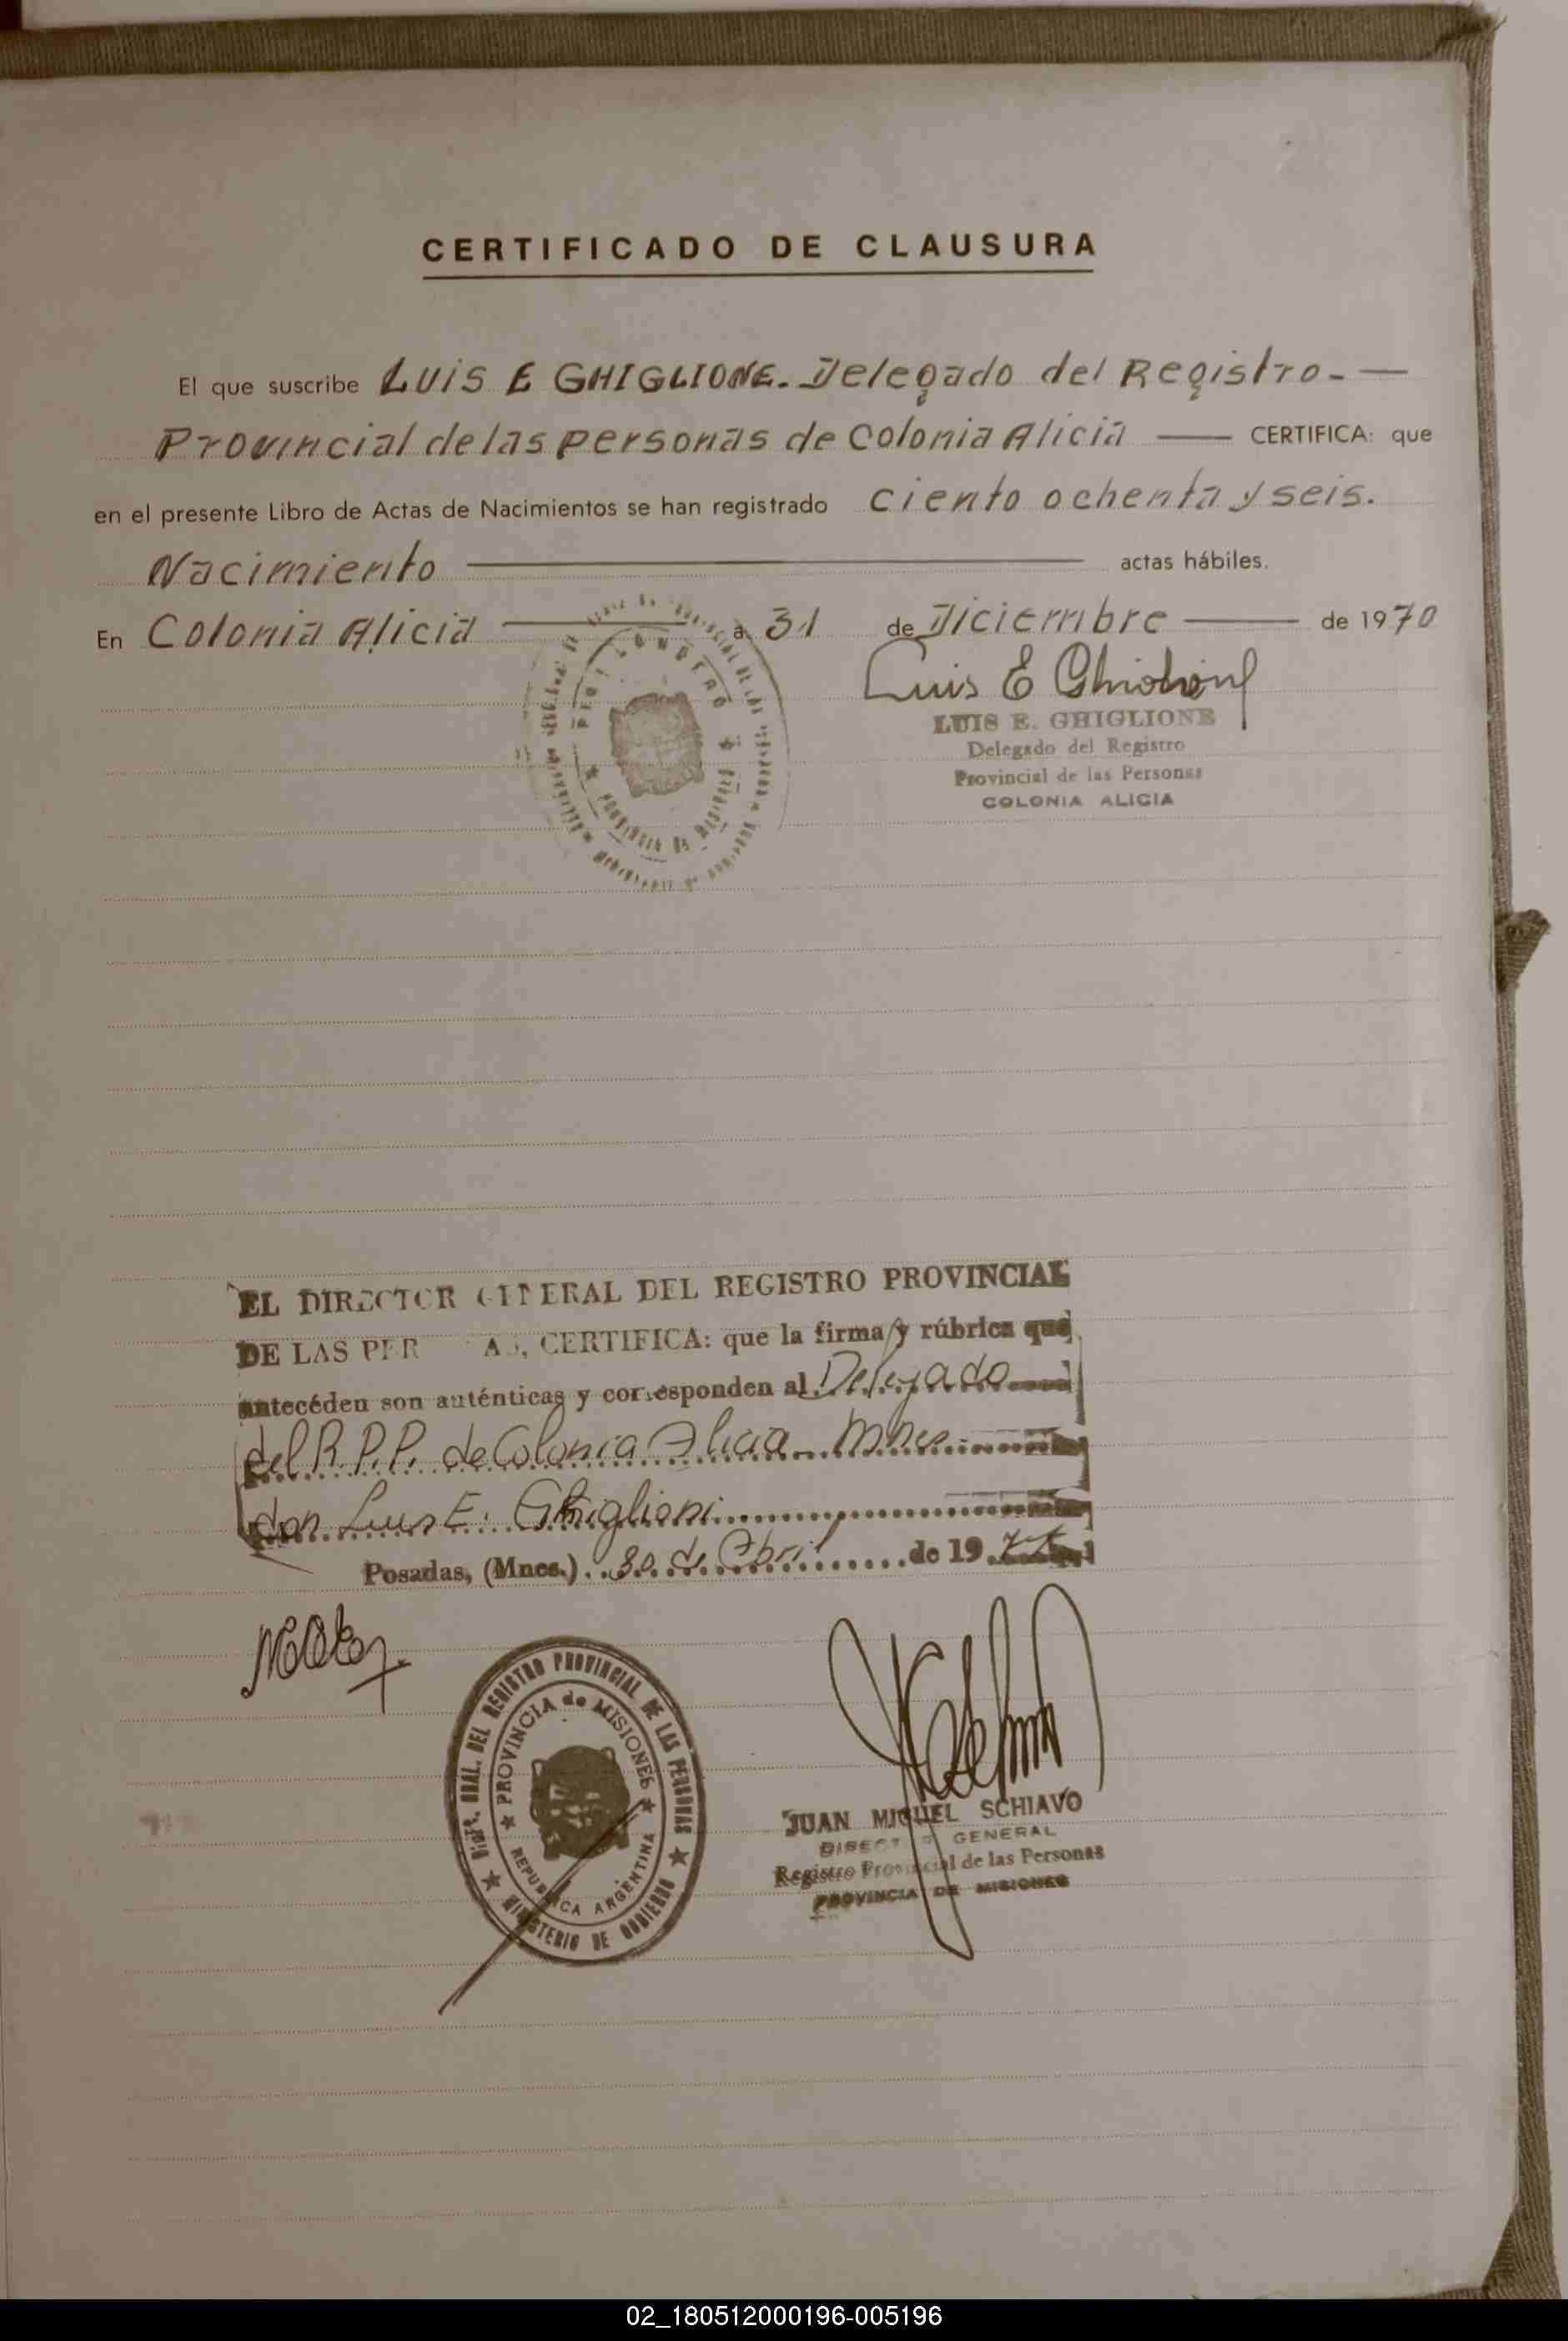 CERTIFICADO DE CLAUSURA
El que suscribe LUIS E GHIGLIONE. Delegado del Registro.
Provincial de las personas de Colonia Alicia CERTIFICA: que
en el presente Libro de Actas de Nacimientos se han registrado ciento ochenta y seis.
Nacimiento actas hábiles.
En Colonia Alicia a 31 de Diciembre de 1970
Luis E
LUIS E. GHIGLIONE
Delegado del Registro
Provincial de las Personas
COLONIA ALICIA
EL DIRECTOR GENERAL DEL REGISTRO PROVINCIAL
DE LAS PER AS, CERTIFICA: que la firma y rúbrica que
antecéden son auténticas y corresponden al Delegado
del R.P.P. de Colonia Alicia Mnes
don Luis E. Ghiglioni
Posadas, (Mnes.) 30 de Abril de 19
DIRE. GRAL. DEL REGISTRO PROVINCIAL DE LAS PERSONAS
MINISTERIO DE GOBIERNO
PROVINCIA de MISIONES
REPUBLICA ARGENTINA
JUAN MIGUEL SCHIAVO
DIRECTOR GENERAL
Registro Provincial de las Personas
PROVINCIA DE MISIONES
02_180512000196-005196